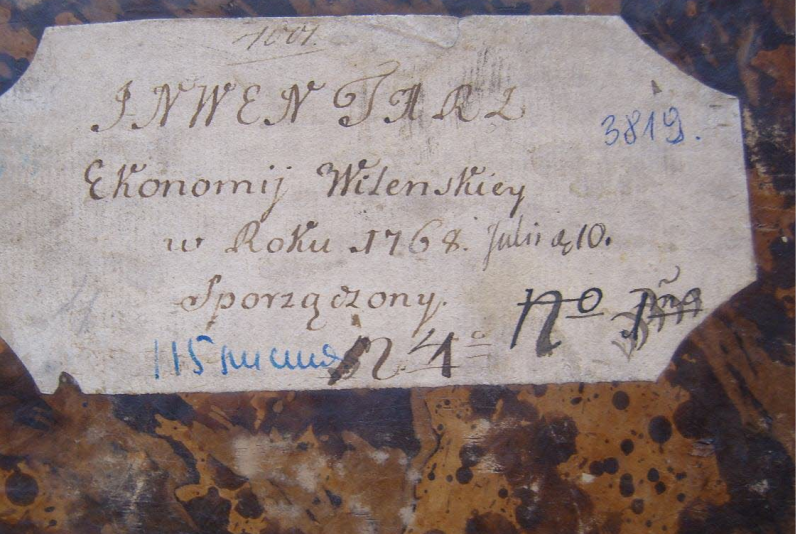 1001.
INWENTARZ
3819.
Ekonomij Wilenskiey
w Roku 1768. Julii d 10.
Sporządzony.
No 1mo
115 листов
N 4o